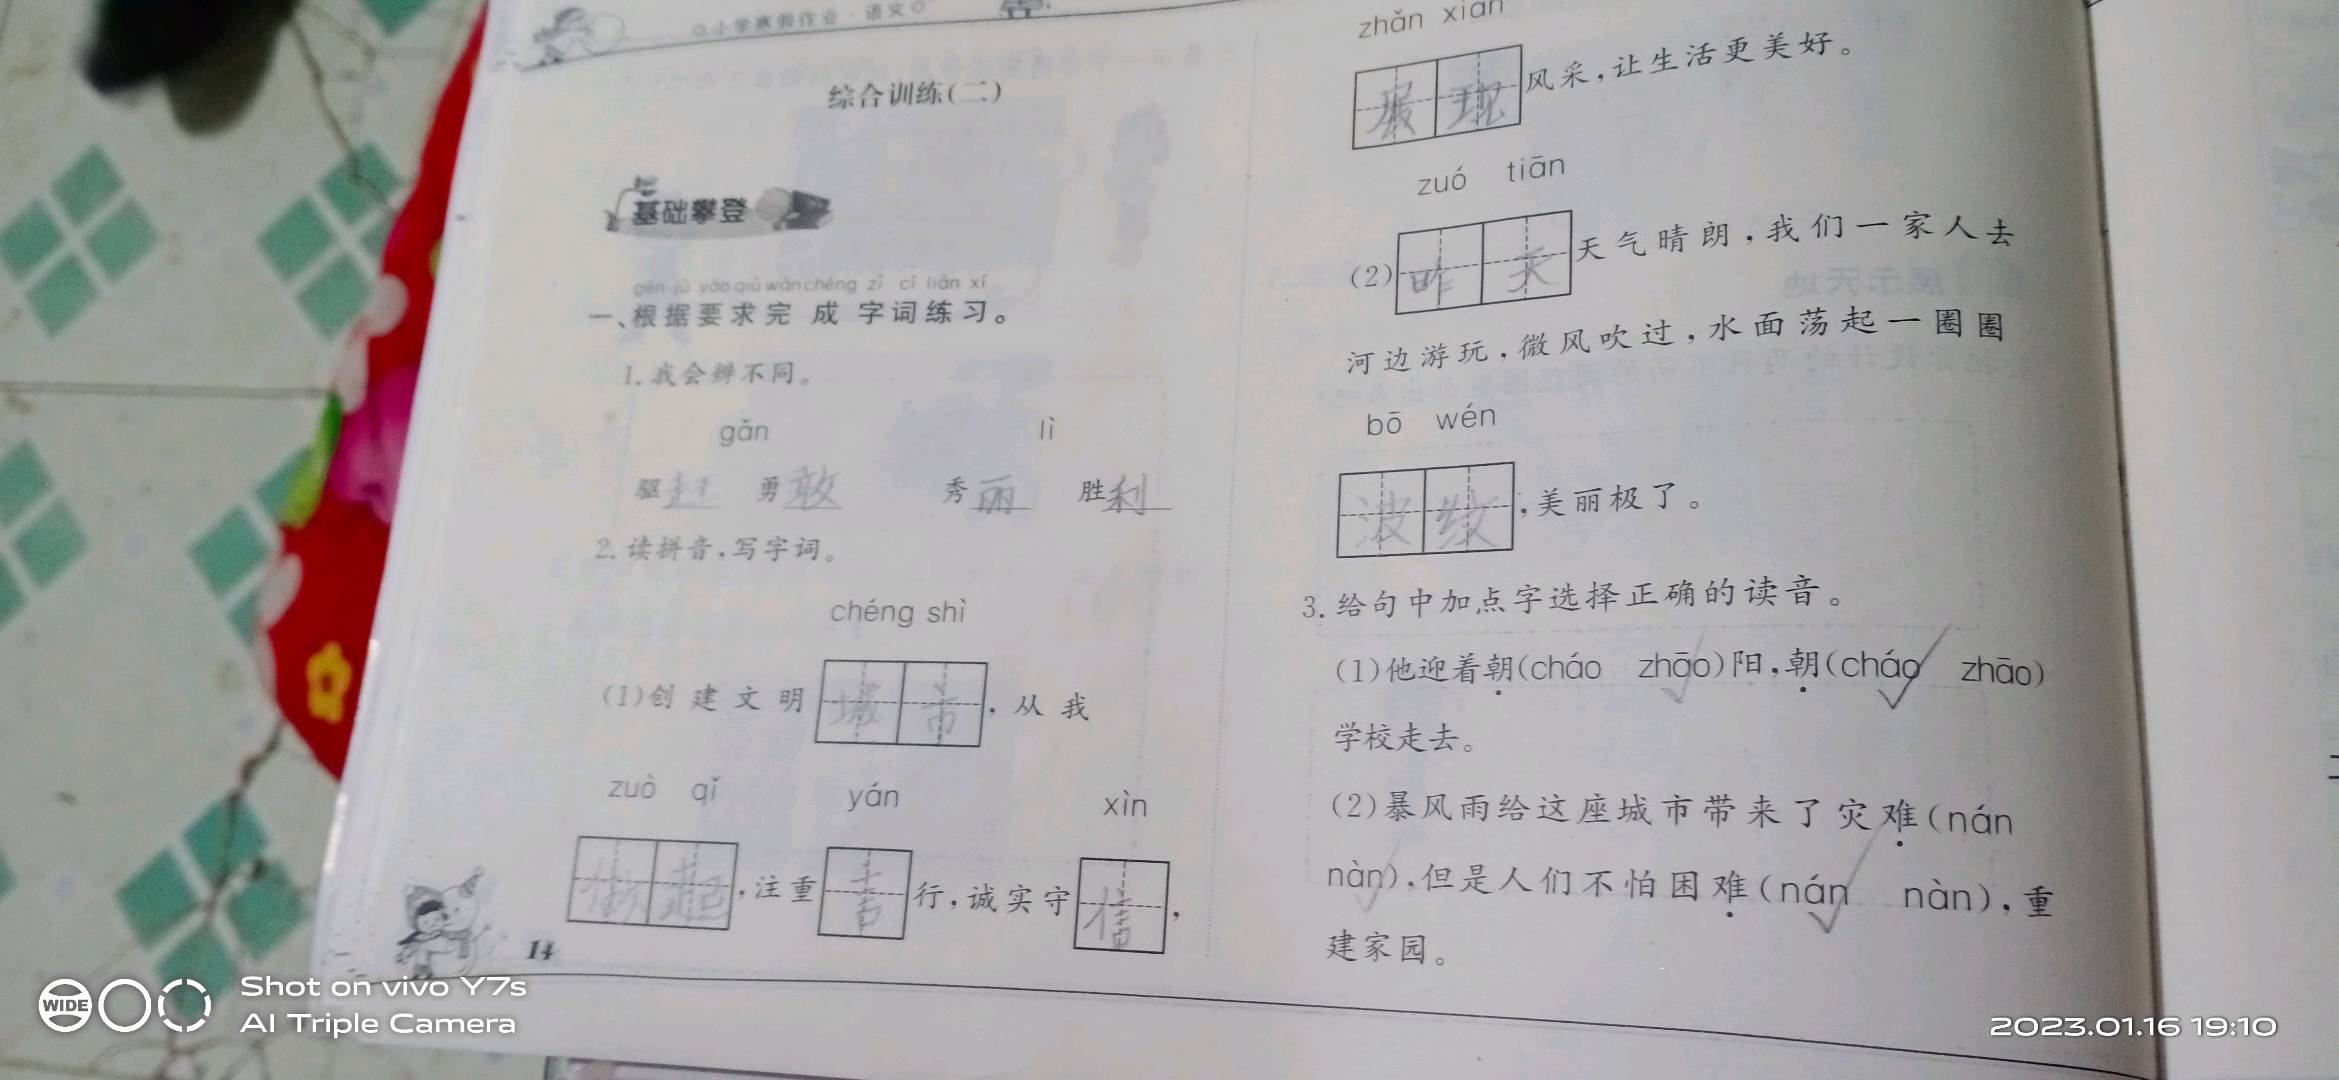 小学寒假作业·语文
综合训练(二)
基础攀登
gēn jù yāo qiú wán chéng zì cí liàn xí
一、根据要求完成字词练习。
1.我会辨不同。
gǎn lì
驱赶 勇敢 秀丽 胜利
2.读拼音,写字词。
chéng shì
(1)创建文明城市,从我
zuò qǐ yán xìn
做起,注重言行,诚实守信,
14
zhǎn xiàn
展现风采,让生活更美好。
zuó tiān
(2)昨天天气晴朗,我们一家人去
河边游玩,微风吹过,水面荡起一圈圈
bō wén
波纹,美丽极了。
3.给句中加点字选择正确的读音。
(1)他迎着朝(cháo zhāo)阳,朝(cháo zhāo)
学校走去。
(2)暴风雨给这座城市带来了灾难(nán
nàn),但是人们不怕困难(nán nàn),重
建家园。
WIDE
Shot on vivo Y7s
AI Triple Camera
2023.01.16 19:10